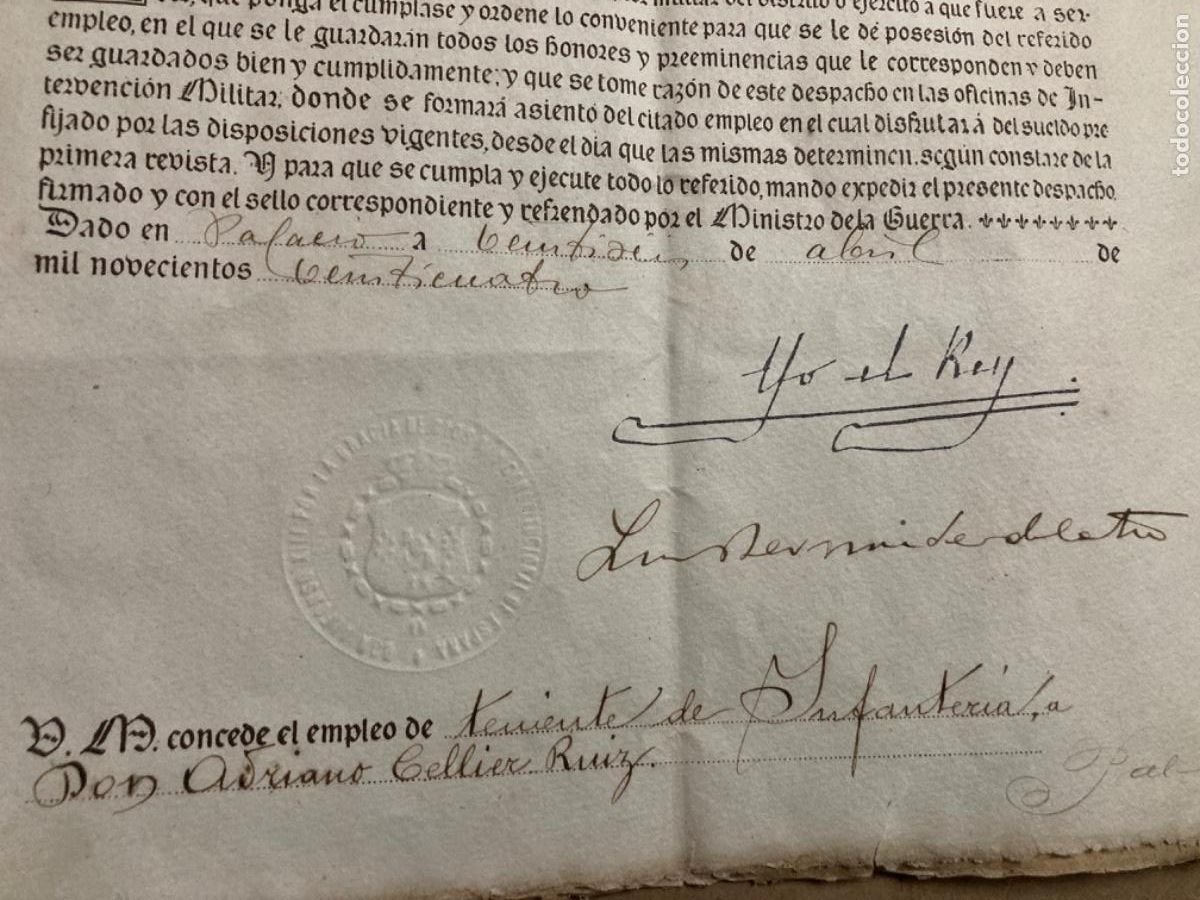 que ponga el cúmplase y ordene lo conveniente para que se le dé posesión del referido
empleo, en el que se le guardarán todos los honores y preeminencias que le corresponden y deben
ser guardados bien y cumplidamente; y que se tome razón de este despacho en las oficinas de In-
tervención Militar, donde se formará asiento del citado empleo en el cual disfrutará del sueldo pre
fijado por las disposiciones vigentes, desde el dia que las mismas determinen, según constare de la
primera revista. Y para que se cumpla y ejecute todo lo referido, mando expedir el presente despacho,
firmado y con el sello correspondiente y refrendado por el Ministro de la Guerra.
Dado en Palacio a de abril de
mil novecientos veinticuatro
Yo el Rey
V. M. concede el empleo de teniente de Infantería, a
Don Adriano Cellier Ruiz.
todocoleccion